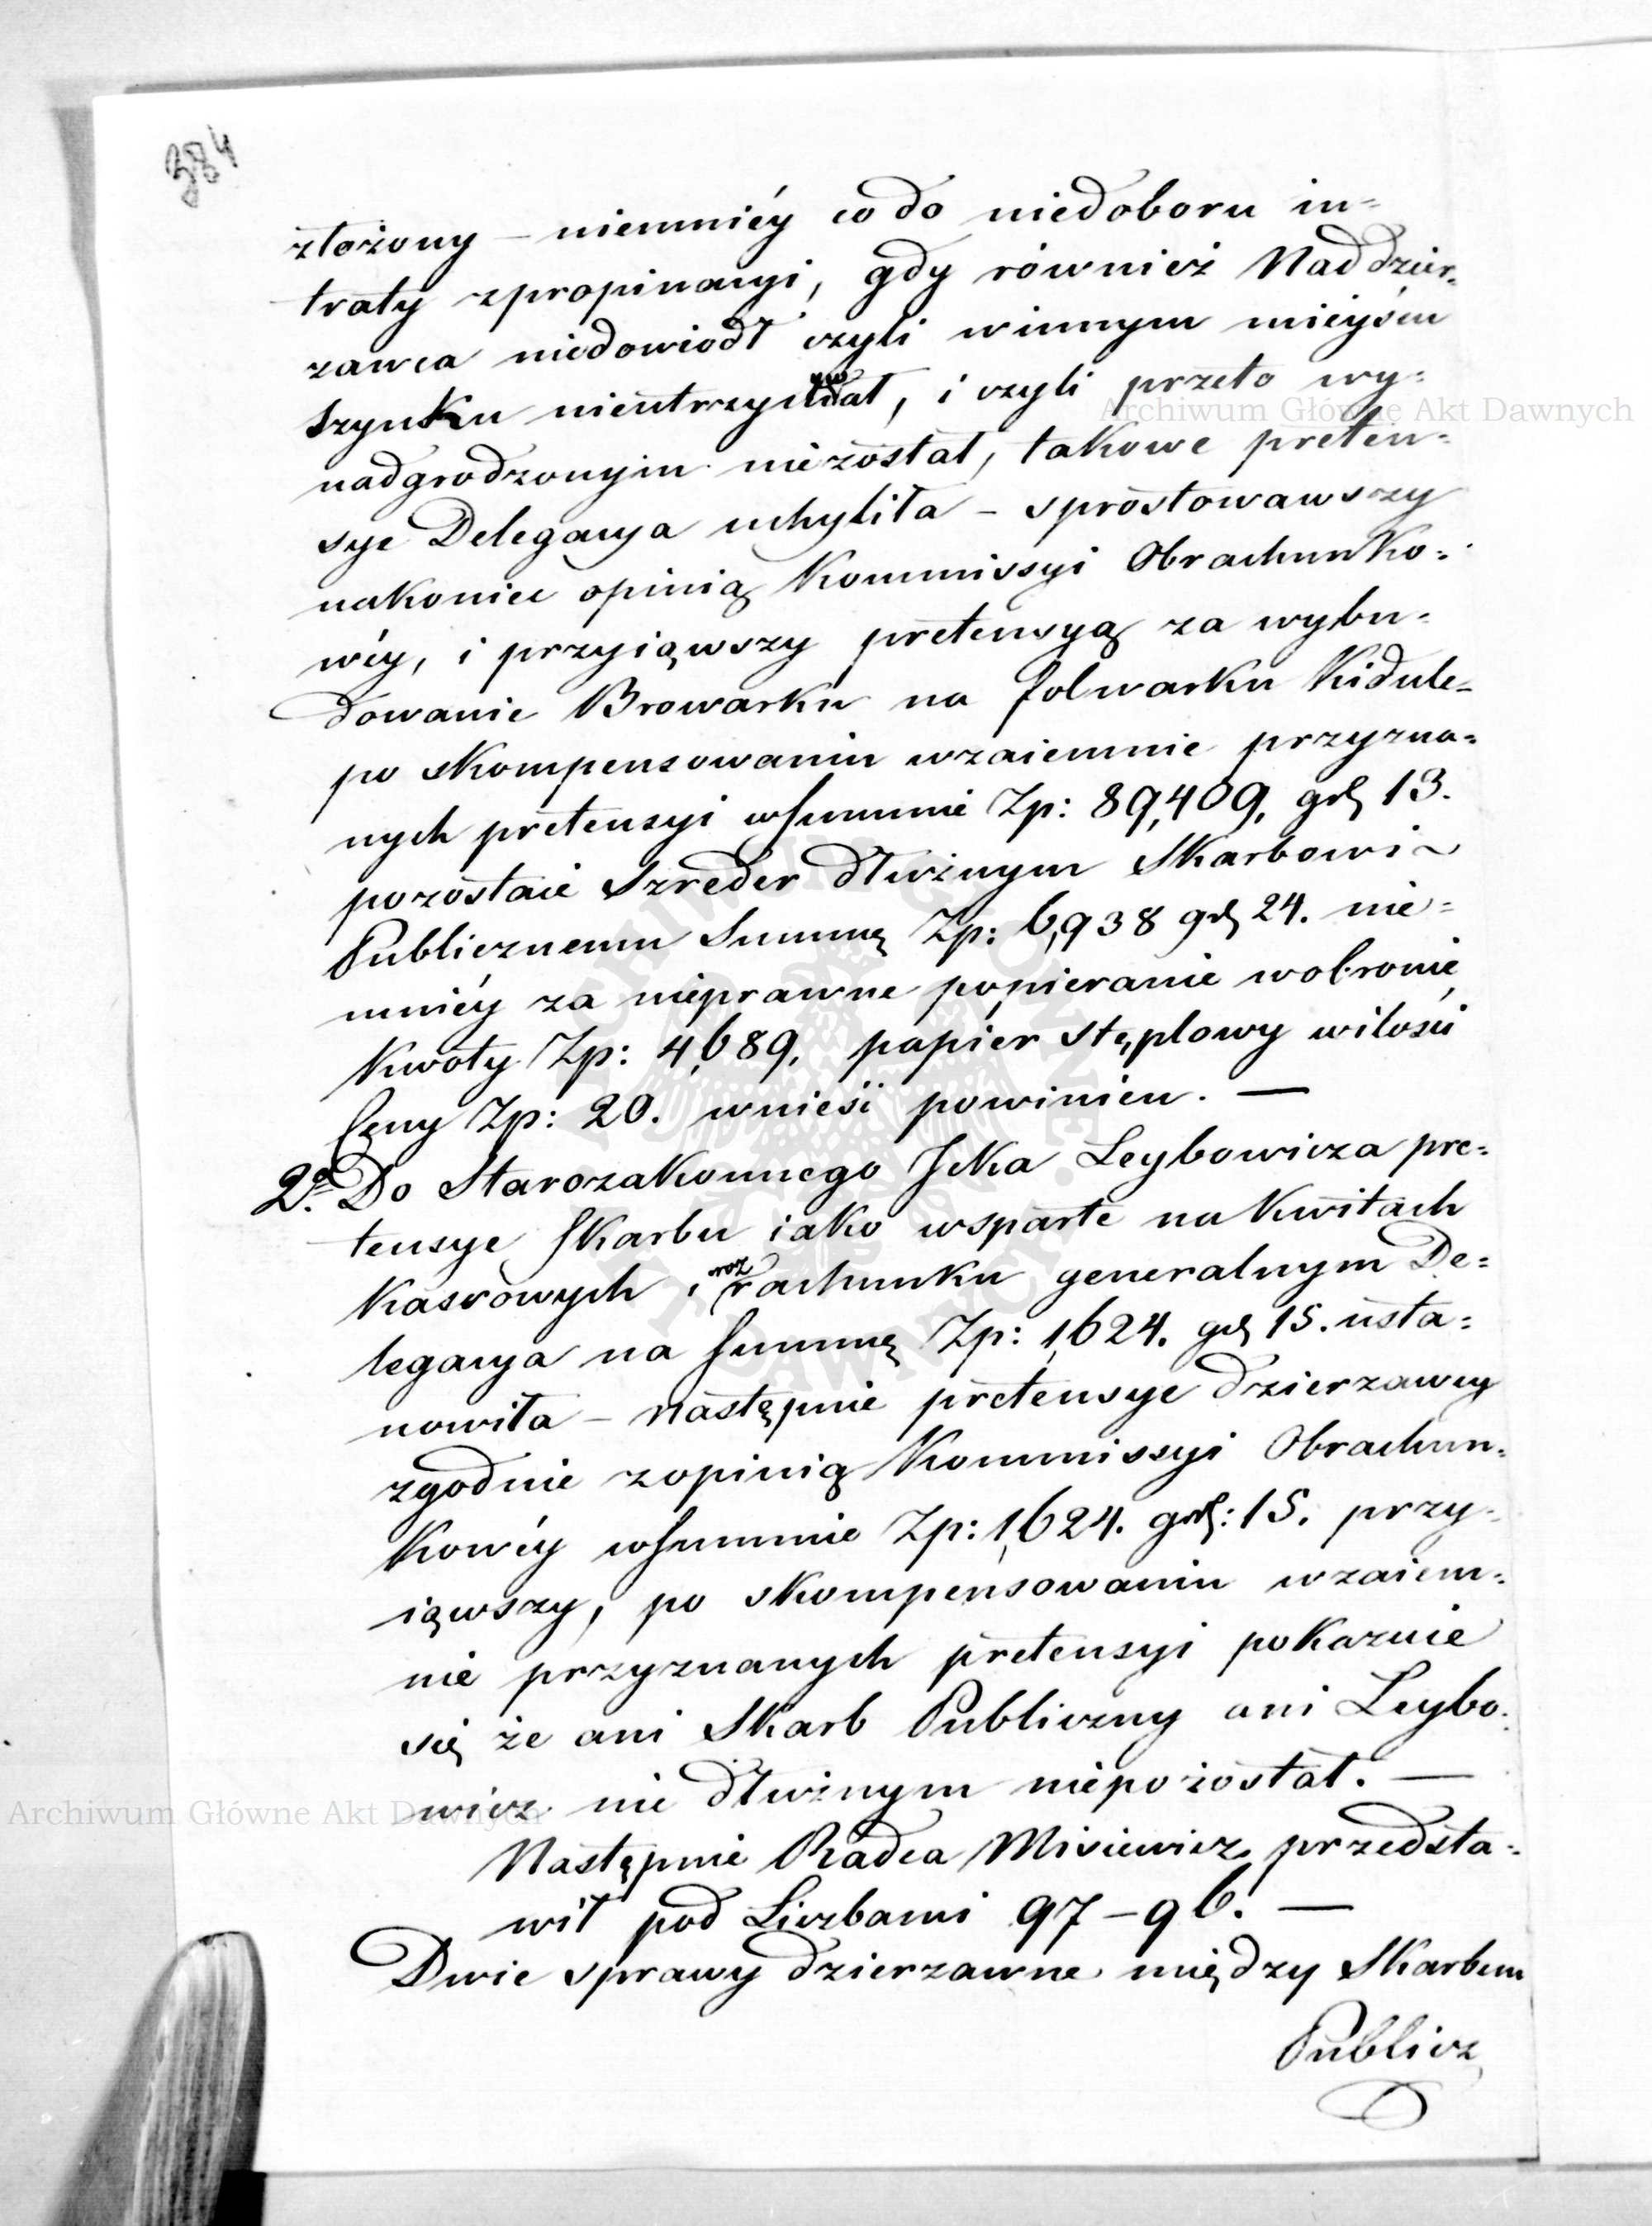 384
złożony – niemniéy co do niedoboru in=
traty zpropinacyi, gdy również Naddzier=
zawca niedowiodł czyli winnym mieyscu
szynku nieutrzymywał, i czyli przeto wy=
nadgrodzonym niezostał, takowe preten=
sye Delegacya uchyliła – sprostowawszy
nakoniec opinią Kommissyi Obrachunko=
wéy, i przyiąwszy pretensyą za wybu=
dowanie Browarku na folwarku Kidule–
po skompensowaniu wzaiemnie przyzna=
nych pretensyi wsummie Zp: 89,409, gr 13.
pozostaie Szreder dłużnym Skarbowi
Publicznemu Summę Zp: 6,938 gr 24. nie=
mniéy za nieprawne popieranie wobronie
Kwoty Zp: 4,689, papier stęplowy wilości
Ceny Zp: 20. wnieść powinien. —
2º. Do Starozakonnego Jcka Leybowicza pre=
tensye skarbu iako wsparte na Kwitach
Kassowych i rozrachunku generalnym De=
legacya na summę Zp: 1,624. gr 15. usta=
nowiła – następnie pretensye dzierzawcy
zgodnie zopinią Kommissyi Obrachun=
kowéy wsummie Zp: 1,624. gr: 15. przy=
iąwszy, po skompensowaniu wzaiem=
nie przyznanych pretensyi pokazuie
się że ani Skarb Publiczny ani Leybo=
wicz nie dłużnym niepozostał. —
Następnie Radca Misiewicz przedsta=
wił pod Liczbami 97–96. —
Dwie sprawy dzierzawne między Skarbem
Publicz
Archiwum Główne Akt Dawnych
Archiwum Główne Akt Dawnych